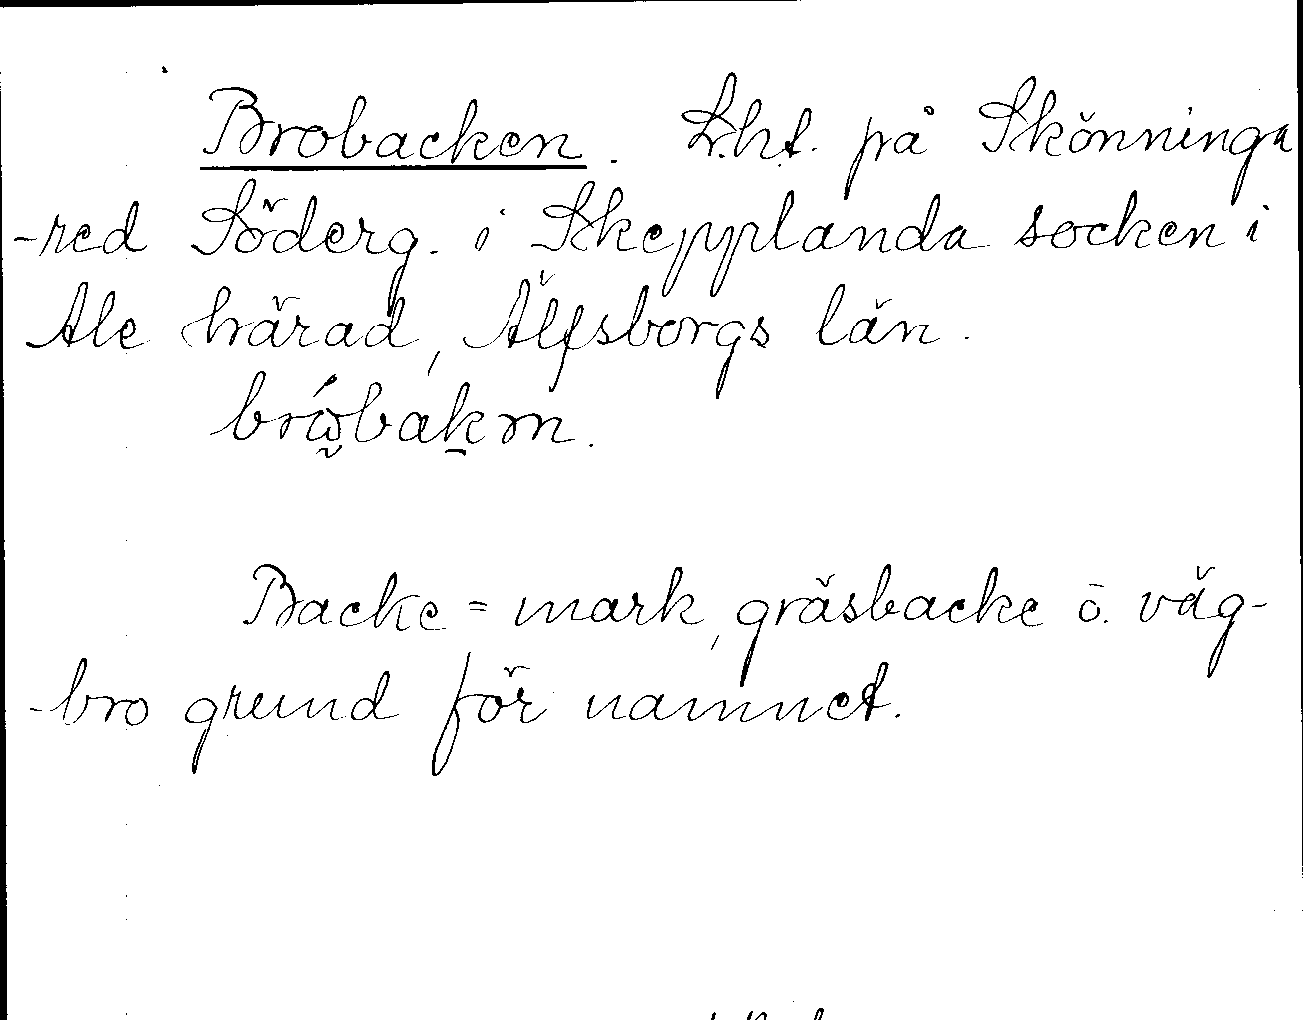 Brobacken. Lht. på Skönninga
-red Söderg. i Skepplanda socken i
Ale härad, Älfsborgs län.
brώbakm.
Backe = mark, gräsbacke o. väg-
-bro grund för namnet.